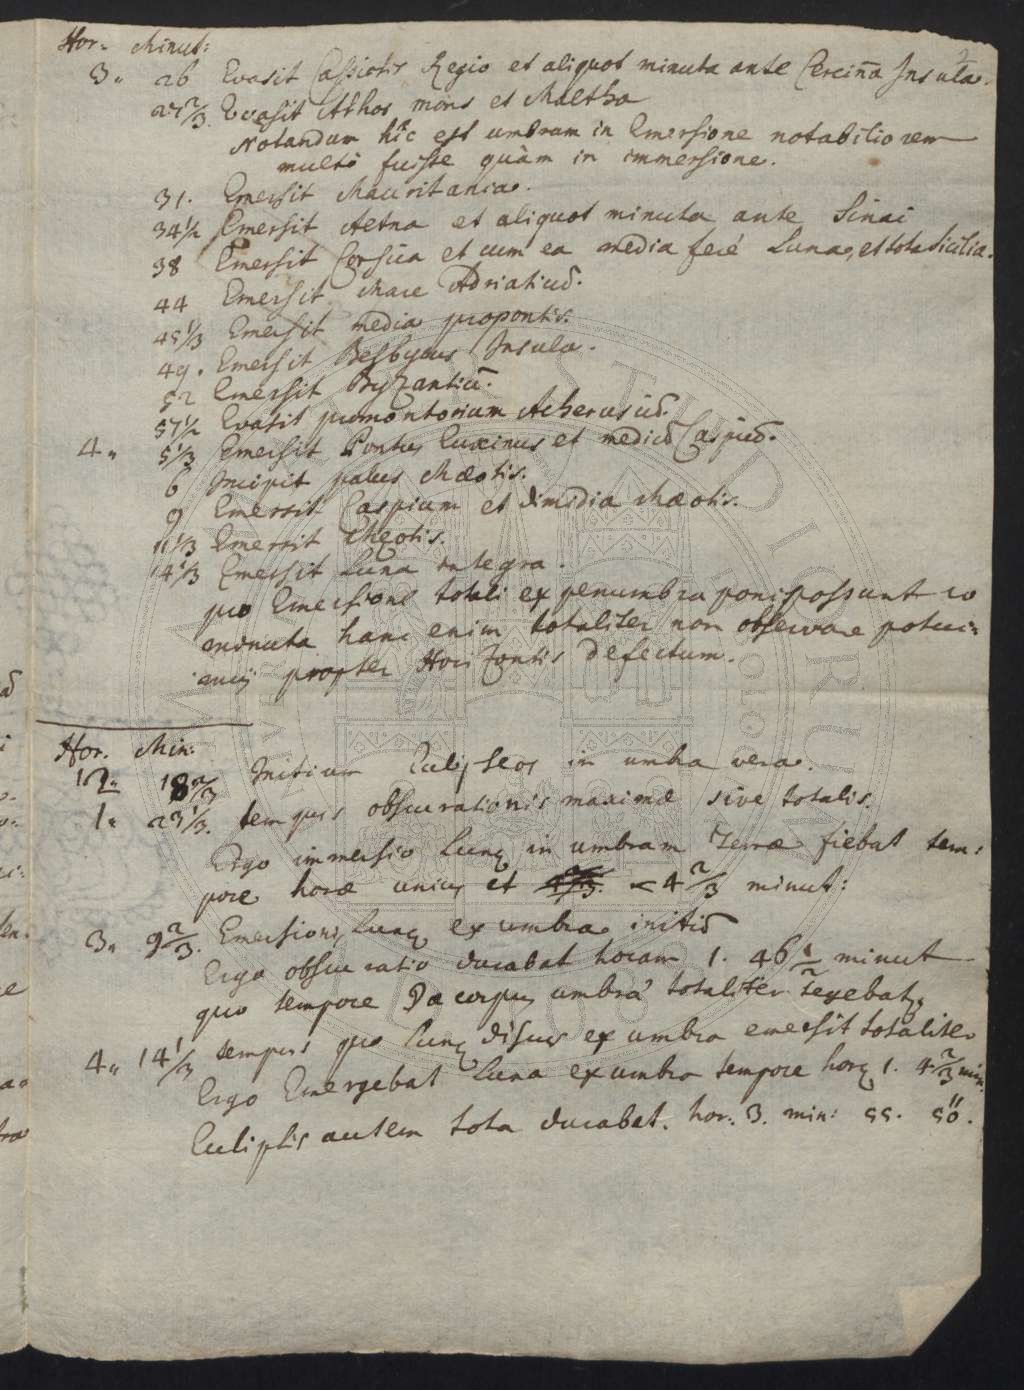 Hor. Minut:
3. 26 Evasit Cassiotis Regio et aliquot minuta ante Cercin̄a Insula.
27 2/3 Evasit Athos mons et Maltha
Notandum hîc est umbram in Emersione notabiliorem
multò fuisse quàm in immersione.
31. Emersit Mauritania.
34 1/2 Emersit Aetna et aliquot minuta ante Sinai
38 Emersit Corsica et cum ea media ferè Luna, et tota Sicilia.
44 Emersit Mare Adriaticū.
45 1/3 Emersit media propontis.
49. Emersit Besbycus Insula.
52 Emersit Byzantiū.
57 1/2 Evasit promontorium Acherusiū.
4. 5 1/3 Emersit Pontus Euxinus et mediū Caspiū.
6 Incipit palus Mæotis.
9 Emersit Caspium et dimidia Mæotis.
11 1/3 Emersit Mæotis.
14 1/3 Emersit Luna integra.
pro Emersione totali ex penumbra poni possunt 10
minuta hanc enim totaliter non observare potui-
mus propter Horizontis defectum.
Hor. Min:
12. 18 2/3 Initium Eclipseos in umbra vera.
1. 23 1/3. tempus obscurationis maximæ sive totalis.
Ergo immersio Lunę in umbram Terræ fiebat tem-
pore horæ unius et 4 2/3 minut:
3. 9 2/3. Emersionis Lunę ex umbra initiū
Ergo obscuratio durabat horam 1. 46 1/2 minut
quo tempore corpus umbrâ totaliter tegebatur
4. 14 1/3 tempus quo Lunę discus ex umbra emersit totaliter
Ergo Emergebat Luna ex umbra tempore horę 1. 4 2/3 min.
Eclipsis autem tota durabat. hor. 3. min: 55. 50".